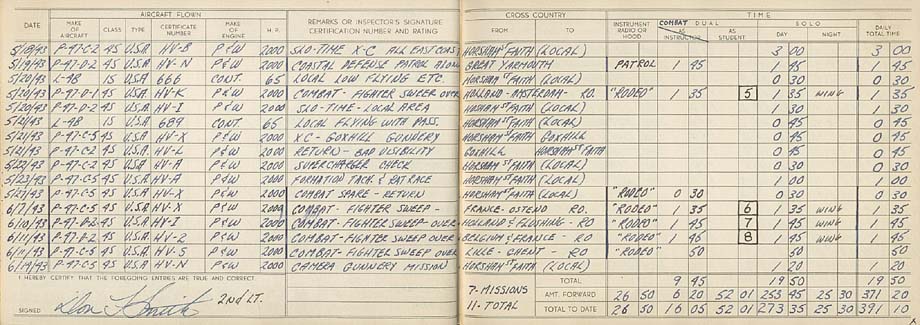 AIRCRAFT FLOWN CROSS COUNTRY TIME
DATE MAKE OF AIRCRAFT CLASS TYPE CERTIFICATE NUMBER MAKE OF ENGINE H.P. REMARKS OR INSPECTOR'S SIGNATURE CERTIFICATION NUMBER AND RATING FROM TO INSTRUMENT RADIO OR HOOD COMBAT DUAL AS INSTRUCTOR AS STUDENT SOLO DAY NIGHT DAILY TOTAL TIME
5/18/43 P-47-C-2 4S U.S.A. HV-B P&W 2000 SLO-TIME X-C ALL EAST COAST HORSHAM ST FAITH (LOCAL) 3 00 3 00
5/19/43 P-47-D-2 4S U.S.A. HV-N P&W 2000 COASTAL DEFENSE PATROL ALONG GREAT YARMOUTH PATROL 1 45 1 45 1 45
5/20/43 L-4B 1S U.S.A. 666 CONT. 65 LOCAL LOW FLYING ETC. HORSHAM ST FAITH (LOCAL) 0 30 0 30
5/20/43 P-47-D-1 4S U.S.A. HV-K P&W 2000 COMBAT-FIGHTER SWEEP OVER HOLLAND-AMSTERDAM- RO. "RODEO" 1 35 5 1 35 WING 1 35
5/20/43 P-47-D-2 4S U.S.A. HV-I P&W 2000 SLO-TIME-LOCAL AREA HORSHAM ST FAITH (LOCAL) 1 30 1 30
5/21/43 L-4B 1S U.S.A. 689 CONT. 65 LOCAL FLYING WITH PASS. HORSHAM ST FAITH (LOCAL) 0 45 0 45
5/21/43 P-47-C-5 4S U.S.A. HV-X P&W 2000 XC-GOXHILL GUNNERY HORSHAM ST FAITH GOXHILL 0 45 0 45
5/21/43 P-47-C-2 4S U.S.A. HV-L P&W 2000 RETURN-BAD VISIBILITY GOXHILL HORSHAM ST FAITH 0 45 0 45
5/22/43 P-47-C-2 4S U.S.A. HV-A P&W 2000 SUPERCHARGER CHECK HORSHAM ST FAITH (LOCAL) 0 30 0 30
5/23/43 P-47-C-5 4S U.S.A. HV-A P&W 2000 FORMATION TACK. & RAT RACE HORSHAM ST FAITH (LOCAL) 1 00 1 00
5/27/43 P-47-C-5 4S U.S.A. HV-X P&W 2000 COMBAT SPARE-RETURN HORSHAM ST FAITH (LOCAL) "RODEO" 0 30 0 30 0 30
6/7/43 P-47-C-5 4S U.S.A. HV-X P&W 2000 COMBAT-FIGHTER SWEEP- FRANCE-OSTEND RO. "RODEO" 1 35 6 1 35 WING 1 35
6/10/43 P-47-D-2 4S U.S.A. HV-I P&W 2000 COMBAT-FIGHTER SWEEP-OVER HOLLAND & FLUSHING-RO "RODEO" 1 45 7 1 45 WING 1 45
6/11/43 P-47-D-2 4S U.S.A. HV-Z P&W 2000 COMBAT-FIGHTER SWEEP OVER BELGIUM & FRANCE-RO "RODEO" 1 45 8 1 45 WING 1 45
P-47-C-5 4S U.S.A. HV-S P&W 2000 COMBAT-FIGHTER SWEEP OVER LILLE-GHENT-RO "RODEO" 50 50 50
6/19/43 P-47-C-5 4S U.S.A. HV-N P&W 2000 CAMERA GUNNERY MISSION HORSHAM ST FAITH (LOCAL) 1 20 1 20
I HEREBY CERTIFY THAT THE FOREGOING ENTRIES ARE TRUE AND CORRECT. TOTAL 9 45 19 50 19 50
7-MISSIONS AMT. FORWARD 26 50 6 20 52 01 253 45 25 30 371 20
SIGNED Don Smith 2nd LT. 11-TOTAL TOTAL TO DATE 26 50 16 05 52 01 273 35 25 30 391 10